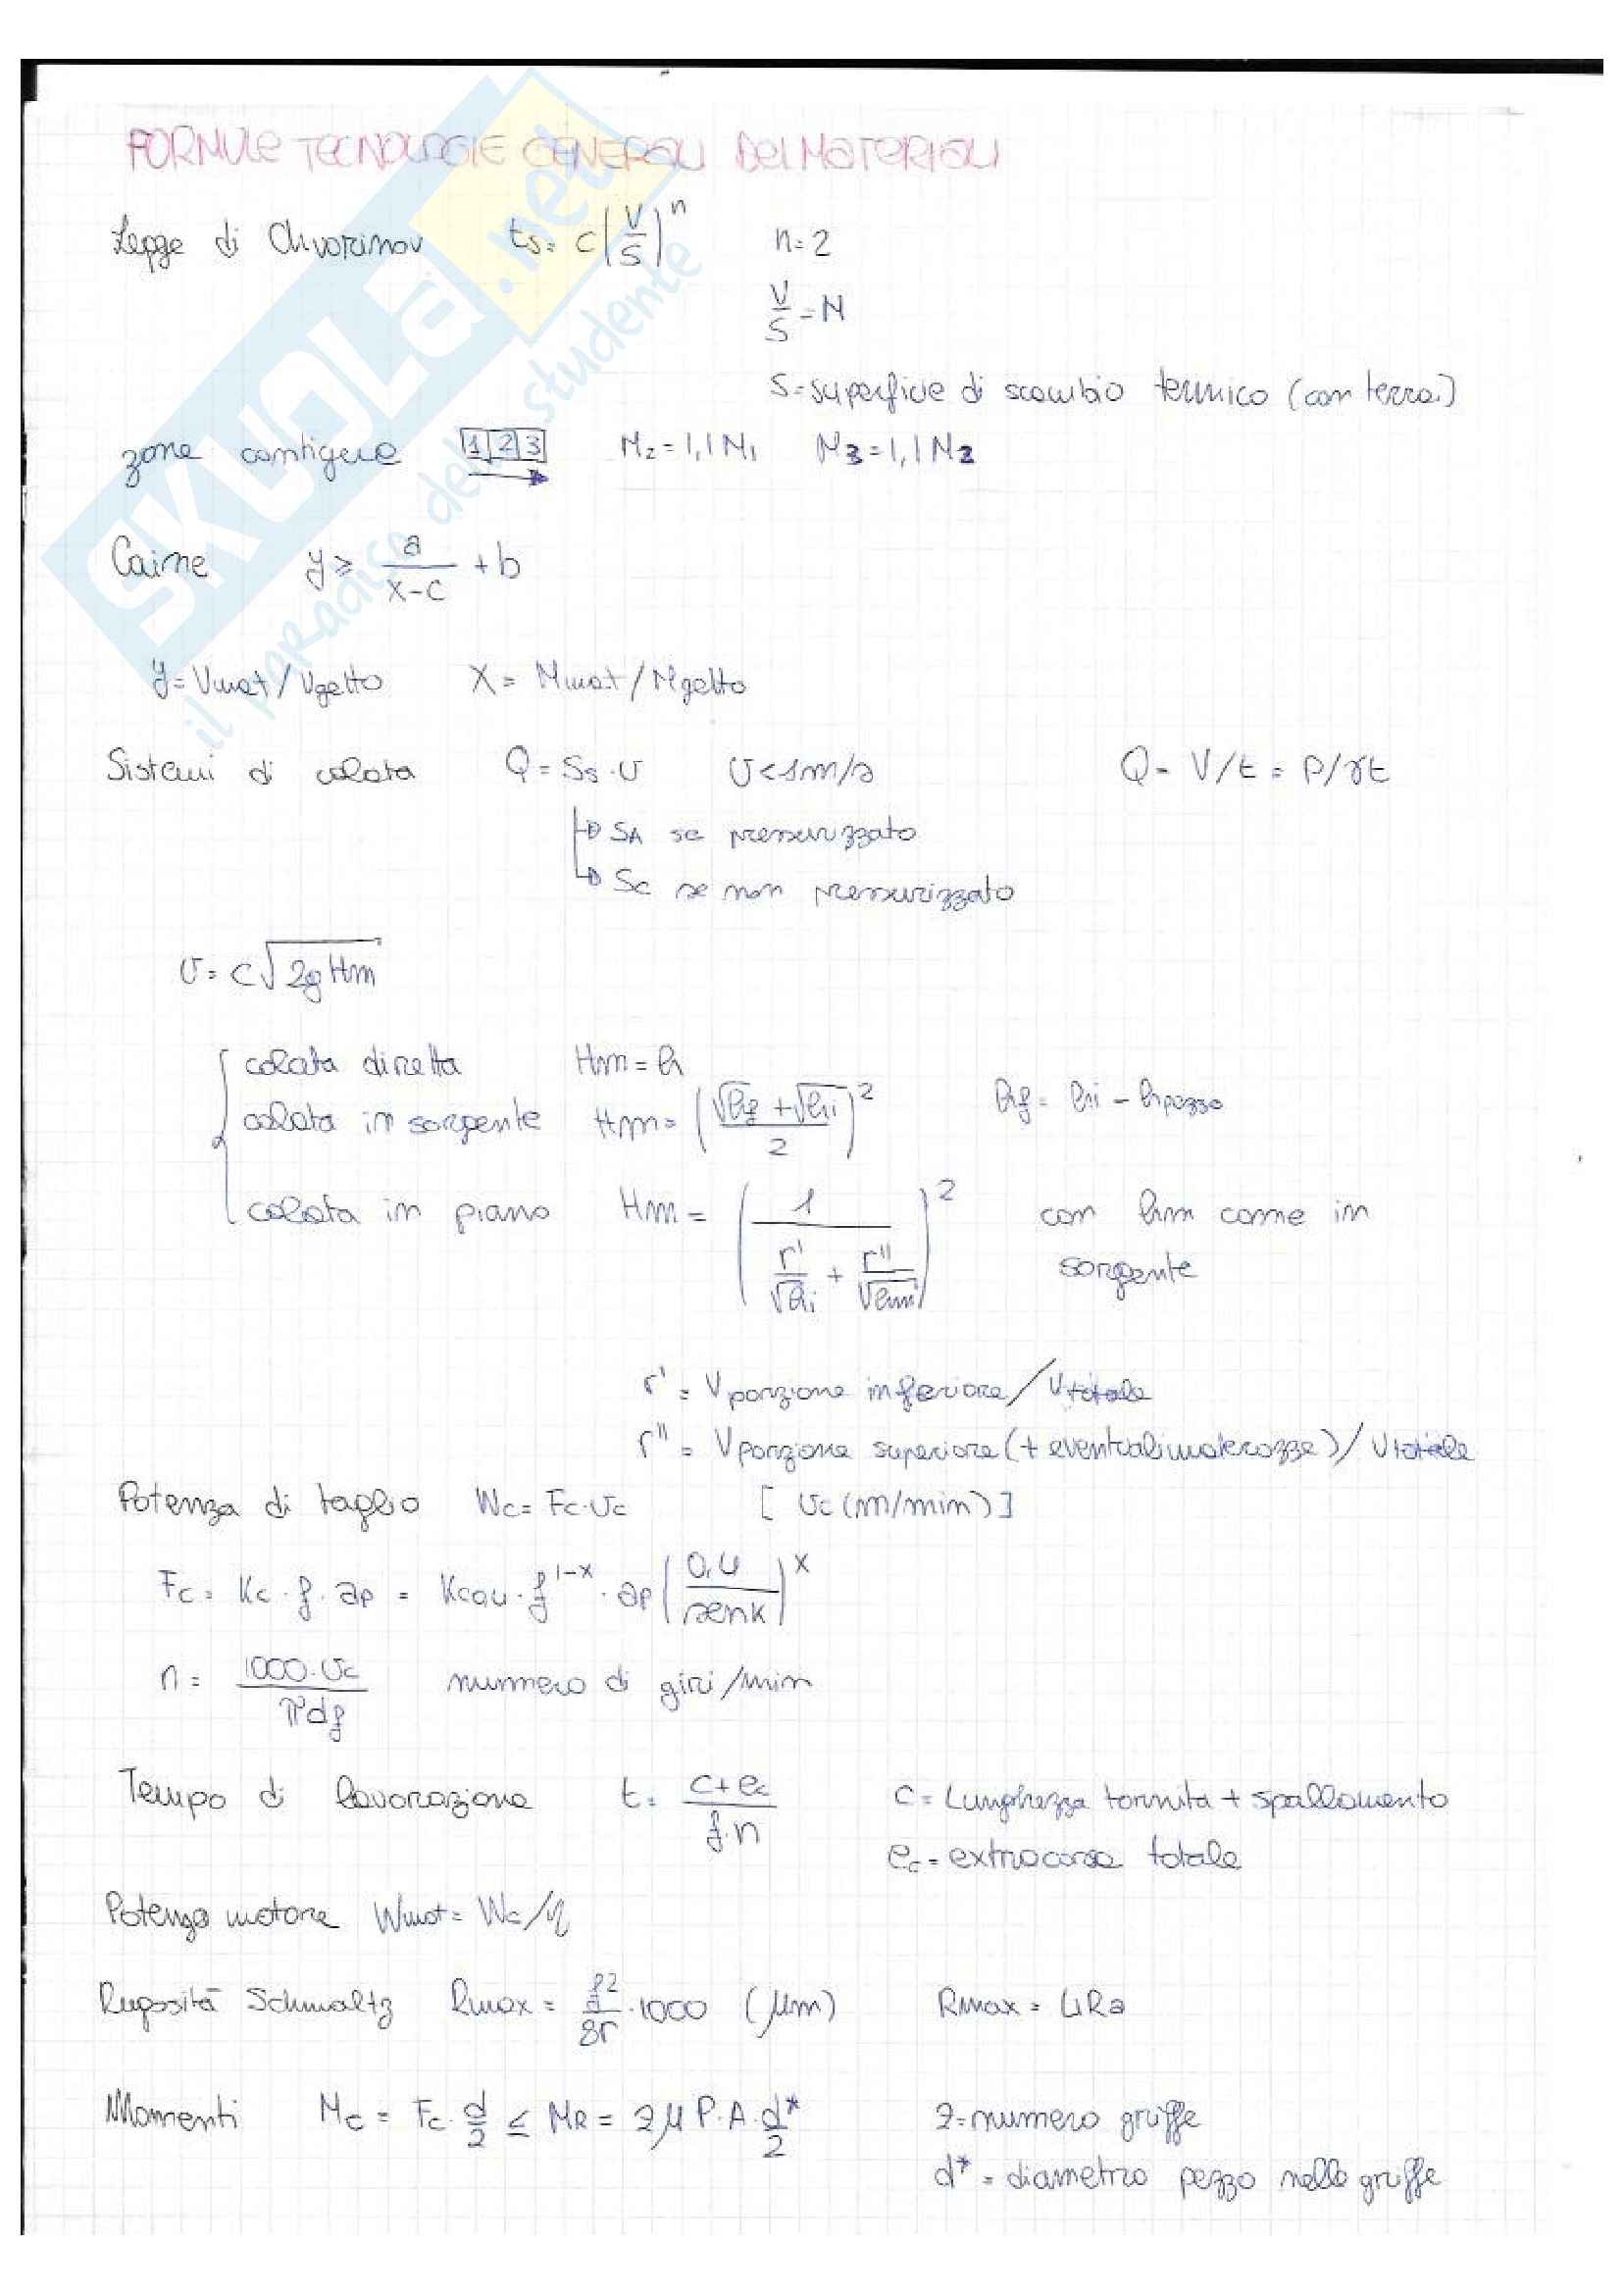 FORMULE TECNOLOGIE GENERALI DEI MATERIALI
Legge di Chvorinov ts = c (V/S)^n n = 2
V/S = M
S = superficie di scambio termico (con terra)
zone contigue 1 2 3 M2 = 1,1 M1 M3 = 1,1 M2
Caine y ≥ a/(x-c) + b
y = Vmat / Vgetto X = Mmat / Mgetto
Sistemi di colata Q = Ss · v v < 1 m/s Q = V/t = P/γt
SA se pressurizzato
Sc se non pressurizzato
v = c √(2g Hm)
colata diretta Hm = h
colata in sorgente Hm = ((√hf + √hi)/2)^2 hf = hi - hpezzo
colata in piano Hm = (1/(r'/√hi + r''/√hm))^2 con hm come in
sorgente
r' = Vporzione inferiore / Vtotale
r'' = Vporzione superiore (+ eventuali materozze) / Vtotale
Potenza di taglio Wc = Fc · vc [ vc (m/min) ]
Fc = Kc · f · ap = Kc04 · f^(1-x) · ap (0,4/senK)^x
n = 1000 · vc / π df numero di giri/min
Tempo di lavorazione t = (c + ec)/(f · n) c = Lunghezza tornita + spallamento
ec = extracorsa totale
Potenza motore Wmot = Wc/η
Rugosità Schmaltz Rmax = f²/8r · 1000 (μm) Rmax = 4Ra
Momenti Mc = Fc · d/2 ≤ MR = zμ P · A · d*/2 z = numero griffe
d* = diametro pezzo nelle griffe
SKUOLA.net
il paradiso dello studente